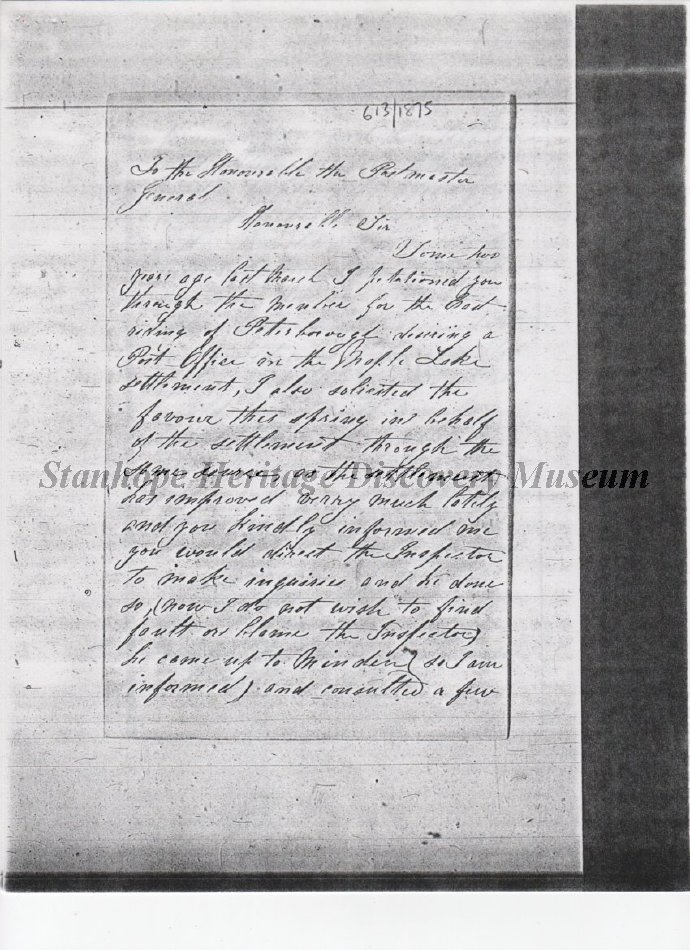 613/1875
To the Honourable the Postmaster
General
Honourable Sir
Some two
years ago last March I petationed you
through the member for the East
riding of Peterborough desiring a
Post Office in the Maple Lake
settlement, I also solicited the
favour this spring in behalf
of the settlement through the
same source as the settlement
Stanhope Heritage Discovery Museum
has improved verry much lately
and you kindly informed me
you would direct the Inspector
to make inquiries and he done
so, (now I do not wish to find
fault or blame the Inspector)
he came up to Minden (so I am
informed) and consulted a few